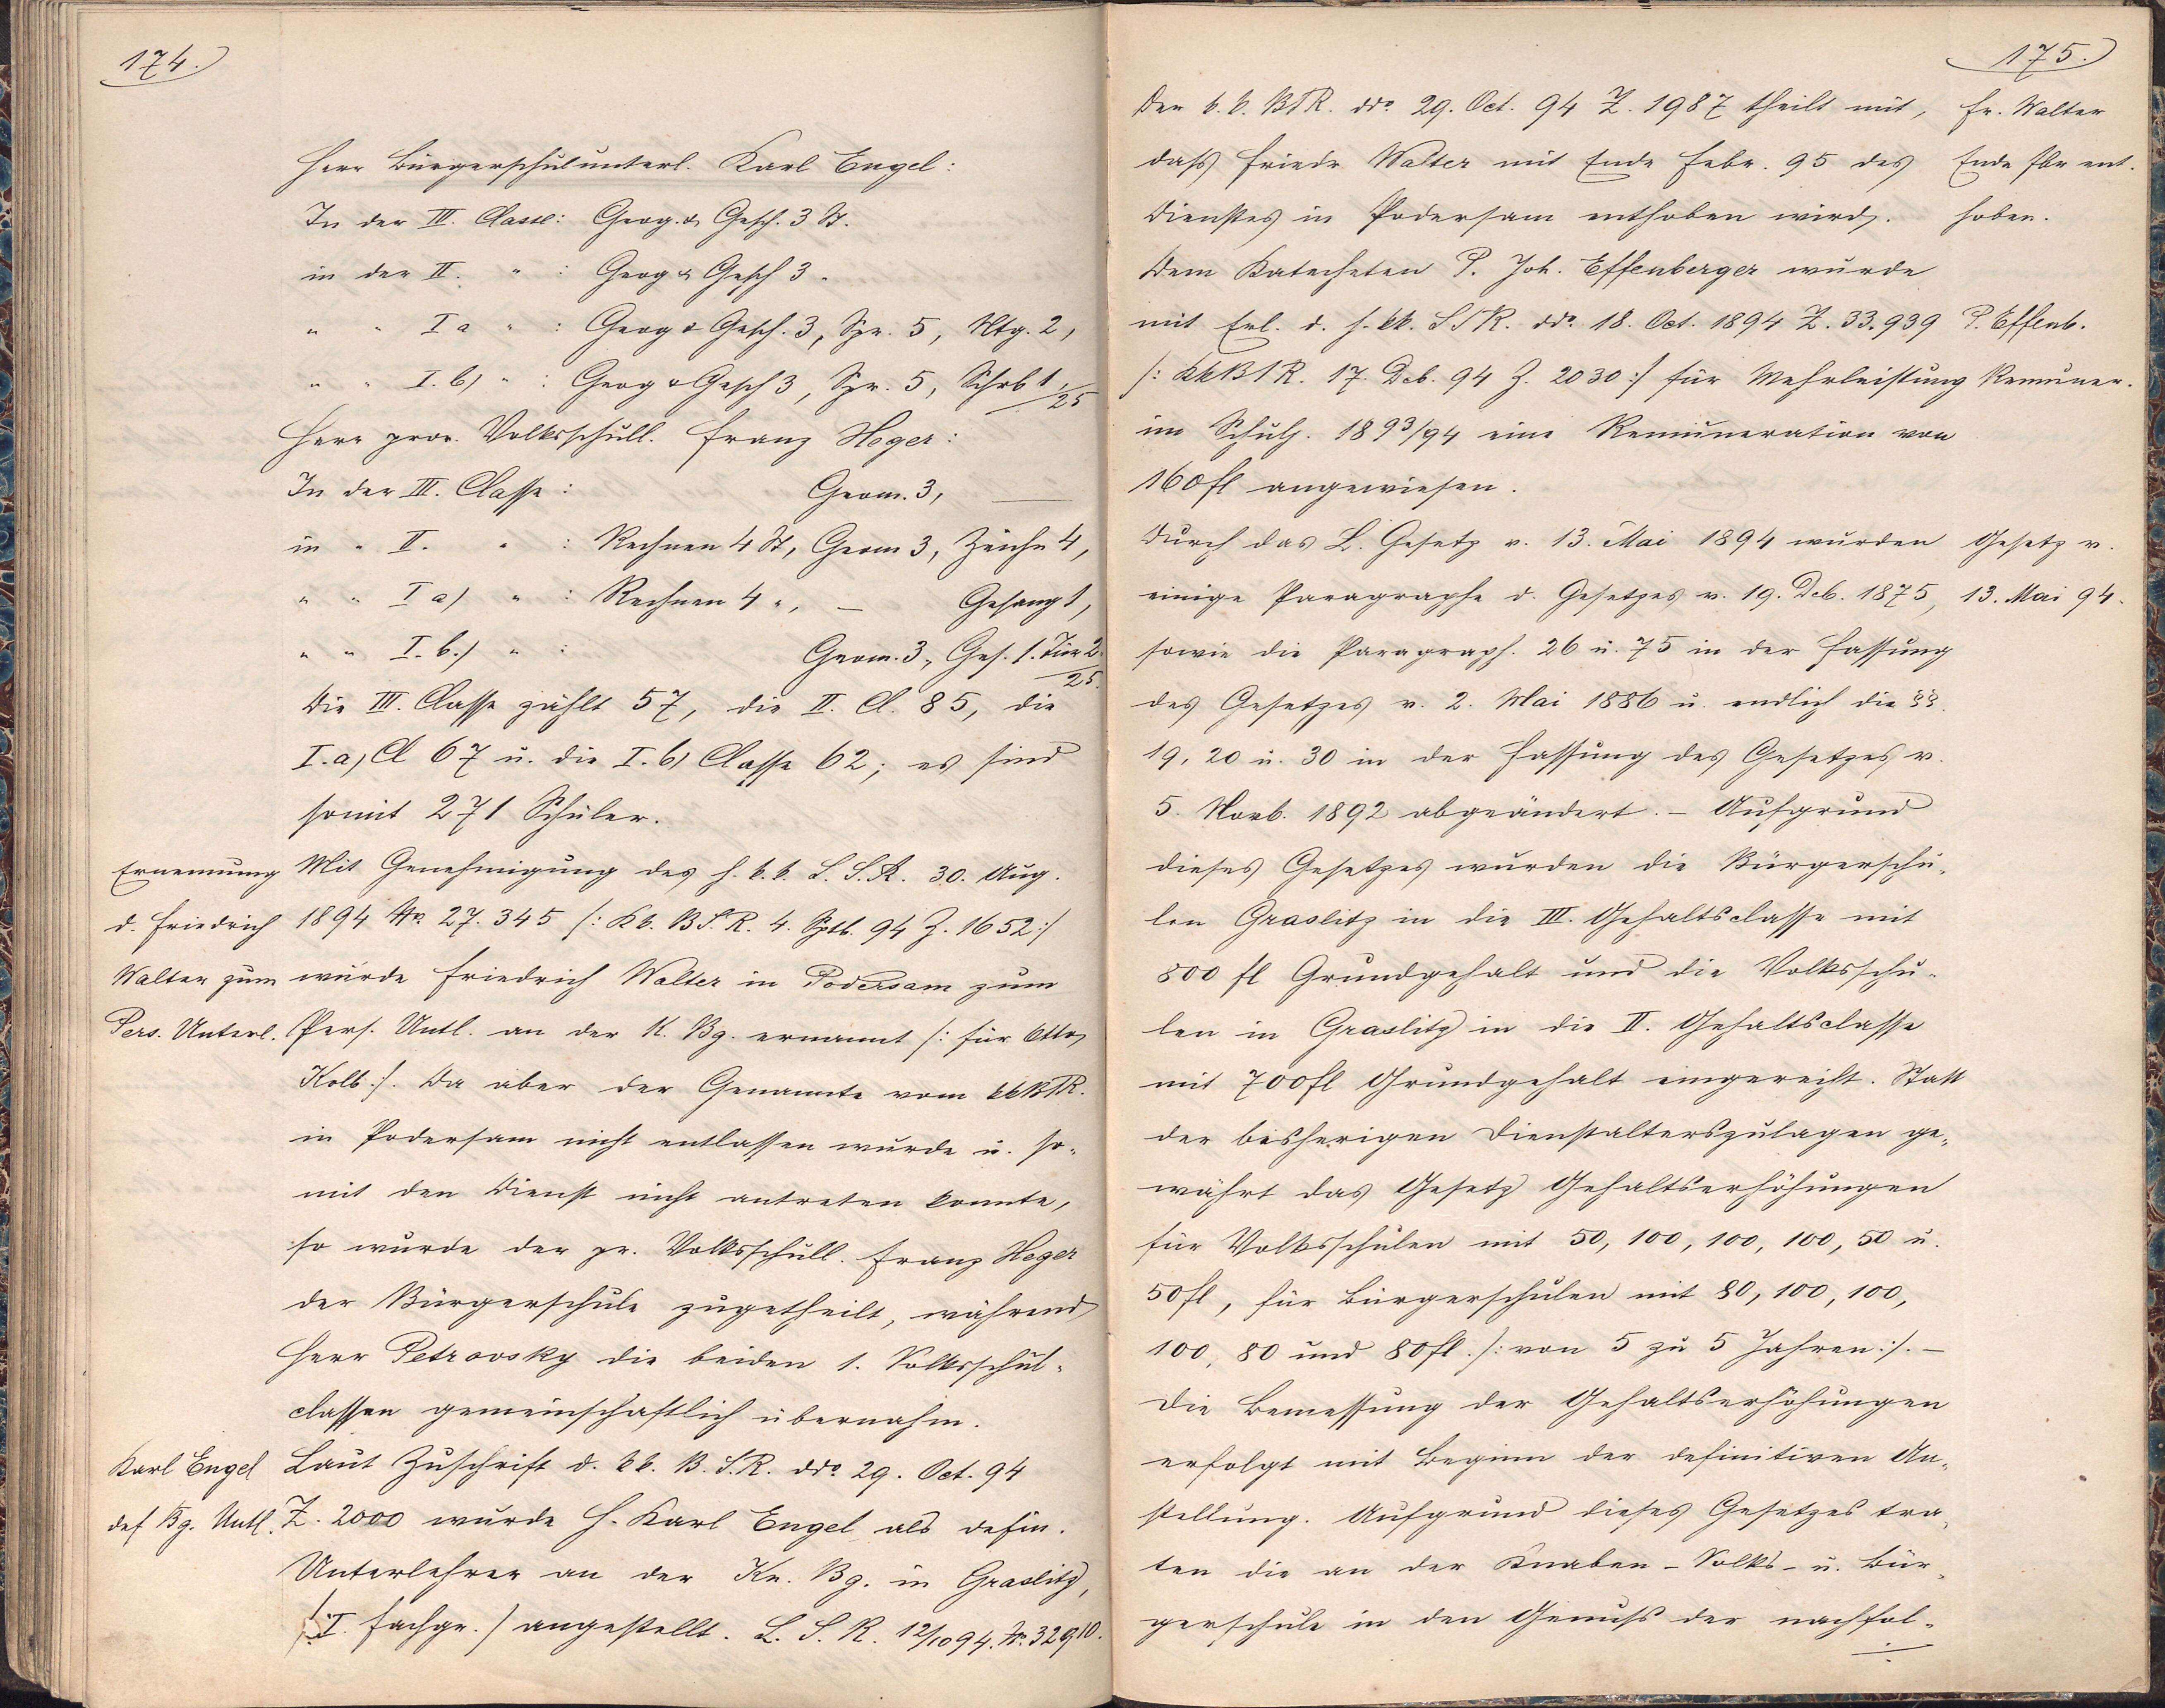 174.
Herr Bürgerschulunterl. Karl Engel:
In der III. Classe: Geog. & Gesch. 3 St.
in der II. " : Geog & Gesch 3 "
" " I a " : Geog & Gesch. 3, Spr. 5, Ntg. 2,
" " I. b) " : Geog & Gesch 3, Spr. 5, Schrb 1,/25
Herr prov. Volksschull. Franz Heger:
In der III. Classe: Geom. 3, —
in " II. " : Rechnen 4 St, Geom 3, Zeichn 4,
" " I a) " : Rechnen 4 ", — Gesang 1,
" " I. b.) " : Geom. 3, Ges. 1. Tur 2./25.
Die III. Classe zählt 57, die II. Cl. 85, die
I. a) Cl 67 u. die I. b) Classe 62; es sind
somit 271 Schüler.
Ernennung
d. Friedrich
Walter zum
Pers. Unterl.
Mit Genehmigung des h. k. k. L. S. R. 30. Aug.
1894 No. 27.345 /: Kk. B. S. R. 4. Sptb. 94 Z. 1652 :/
wurde Friedrich Walter in Podersam zum
Pers. Untl. an der K. Bg. ernannt /: für Otto
Kolb :/. Da aber der Genannte vom kk BSR.
in Podersam nicht entlassen wurde u. so-
mit den Dienst nicht antreten konnte,
so wurde der pr. Volksschull. Franz Heger
der Bürgerschule zugetheilt, während
Herr Petrovsky die beiden 1. Volksschul-
classen gemeinschaftlich übernahm.
Karl Engel
def Bg. Untl.
Laut Zuschrift d. kk. B. S. R. ddo. 29. Oct. 94
Z. 2000 wurde H. Karl Engel als defin.
Unterlehrer an der Kn. Bg. in Graslitz,
(I. Fachgr.) angestellt. L. S. R. 12/10 94. No. 32910.
175.
Der k. k. BSR. ddo. 29. Oct. 94 Z. 1987 theilt mit,
dass Friedr Walter mit Ende Febr. 95 des
Dienstes in Podersam enthoben wird.
Fr. Walter
Ende Fbr ent.
hoben.
Dem Katecheten P. Joh. Effenberger wurde
mit Erl. d. h. kk. LSR. ddo. 18. Oct. 1894 Z. 33.939
/: kk BSR. 17. Deb. 94 Z. 2030 :/ für Mehrleistung
im Schulj. 1893/94 eine Remuneration von
160 fl angewiesen.
P. Effenb.
Remuner.
Durch das L. Gesetz v. 13. Mai 1894 wurden
einige Paragraphe d. Gesetzes v. 19. Deb. 1875,
sowie die Paragraph. 26 u. 75 in der Fassung
des Gesetzes v. 2. Mai 1886 u. endlich die §§.
19, 20 u. 30 in der Fassung des Gesetzes v.
5. Novb. 1892 abgeändert. – Aufgrund
dieses Gesetzes wurden die Bürgerschu-
len Graslitz in die III. Gehaltsclasse mit
800 fl Grundgehalt und die Volksschu-
len in Graslitz in die II. Gehaltsclasse
mit 700 fl Grundgehalt eingereiht. Statt
der bisherigen Dienstalterszulagen ge-
währt das Gesetz Gehaltserhöhungen
für Volksschulen mit 50, 100, 100, 100, 50 u.
50 fl, für Bürgerschulen mit 80, 100, 100,
100, 80 und 80 fl. /: von 5 zu 5 Jahren :/. –
Die Bemessung der Gehaltserhöhungen
erfolgt mit Beginn der definitiven An-
stellung. Aufgrund dieses Gesetzes tra-
ten die an der Knaben-Volks- u. Bür-
gerschule in den Genuss der nachfol-
Gesetz v.
13. Mai 94.